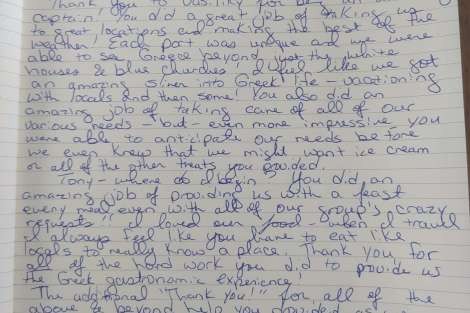 Thank you to Vasiliky for being an
captain! You did a great job of taking us
to great locations and making the best of the
weather! Each port was unique and we were
able to see Greece beyond just the white
houses & blue churches. I feel like we got
an amazing sliver into Greek life - vacationing
with locals and then some! You also did an
amazing job of taking care of all of our
various needs - but even more impressive you
were able to anticipate our needs before
we even knew that we might want ice cream
or all of the other treats you provided.
Tony - where do I begin? You did an
amazing job of providing us with a feast
every meal, even with all of our group's crazy
requests! I loved our food - when I travel
I always feel like you have to eat like
locals to really know a place. Thank you for
all of the hard work you did to provide us
the Greek gastronomic experience!
The additional "Thank you!" for all of the
above & beyond help you provided